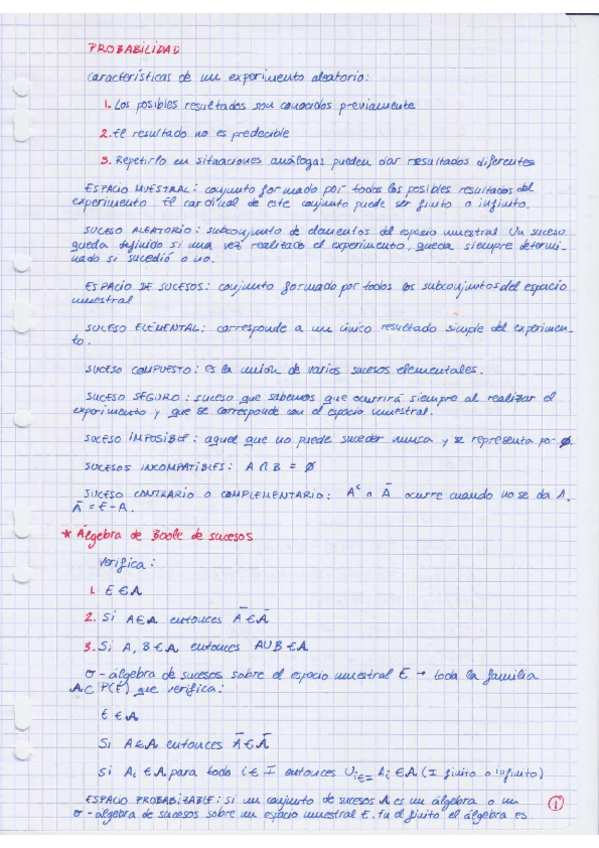 PROBABILIDAD
Características de un experimento aleatorio:
1. Los posibles resultados son conocidos previamente
2. El resultado no es predecible
3. Repetirlo en situaciones análogas pueden dar resultados diferentes
ESPACIO MUESTRAL: conjunto formado por todos los posibles resultados del
experimento. El cardinal de este conjunto puede ser finito o infinito.
SUCESO ALEATORIO: subconjunto de elementos del espacio muestral Un suceso
queda definido si una vez realizado el experimento, queda siempre determi-
nado si sucedió o no.
ESPACIO DE SUCESOS: conjunto formado por todos los subconjuntos del espacio
muestral
SUCESO ELEMENTAL: corresponde a un único resultado simple del experimen-
to.
SUCESO COMPUESTO: es la unión de varios sucesos elementales.
SUCESO SEGURO: suceso que sabemos que ocurrirá siempre al realizar el
experimento y que se corresponde con el espacio muestral.
SUCESO IMPOSIBLE: aquel que no puede suceder nunca y se representa por ∅.
SUCESOS INCOMPATIBLES: A ∩ B = ∅
SUCESO CONTRARIO O COMPLEMENTARIO: Aᶜ o Ā ocurre cuando no se da A.
Ā = E - A.
* Álgebra de Boole de sucesos
Verifica:
1. E ∈ A
2. Si A ∈ A entonces Ā ∈ Ā
3. Si A, B ∈ A entonces A ∪ B ∈ A
σ - álgebra de sucesos sobre el espacio muestral E → toda la familia
A ⊂ P(E) que verifica:
E ∈ A
Si A ∈ A entonces Ā ∈ Ā
Si Ai ∈ A para todo i ∈ I entonces Ui∈= Ai ∈ A (I finito o infinito)
ESPACIO PROBABILIZABLE: si un conjunto de sucesos A es un álgebra o un
σ - álgebra de sucesos sobre un espacio muestral E. el finito el álgebra es
1